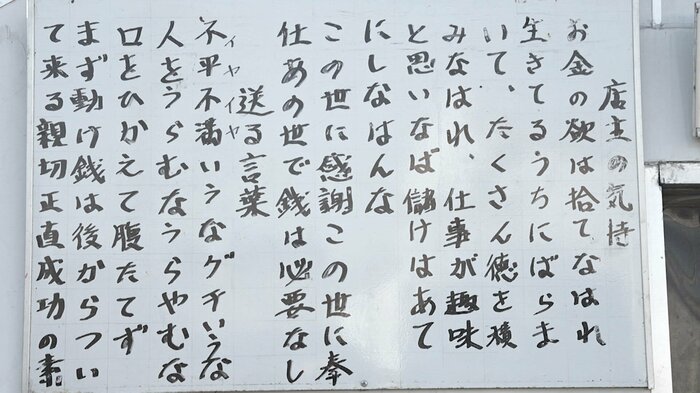 店主の気持
お金の欲は捨てなはれ
生きてるうちにばらま
いて、たくさん徳を積
みなはれ、仕事が趣味
と思いなば儲けはあて
にしなはんな
この世に感謝この世に奉
仕あの世で銭は必要なし
送る言葉
イヤイヤ
不平不満いうなグチいうな
人をうらむなうらやむな
口をひかえて腹たてず
まず動け銭は後からつい
て来る親切正直成功の素